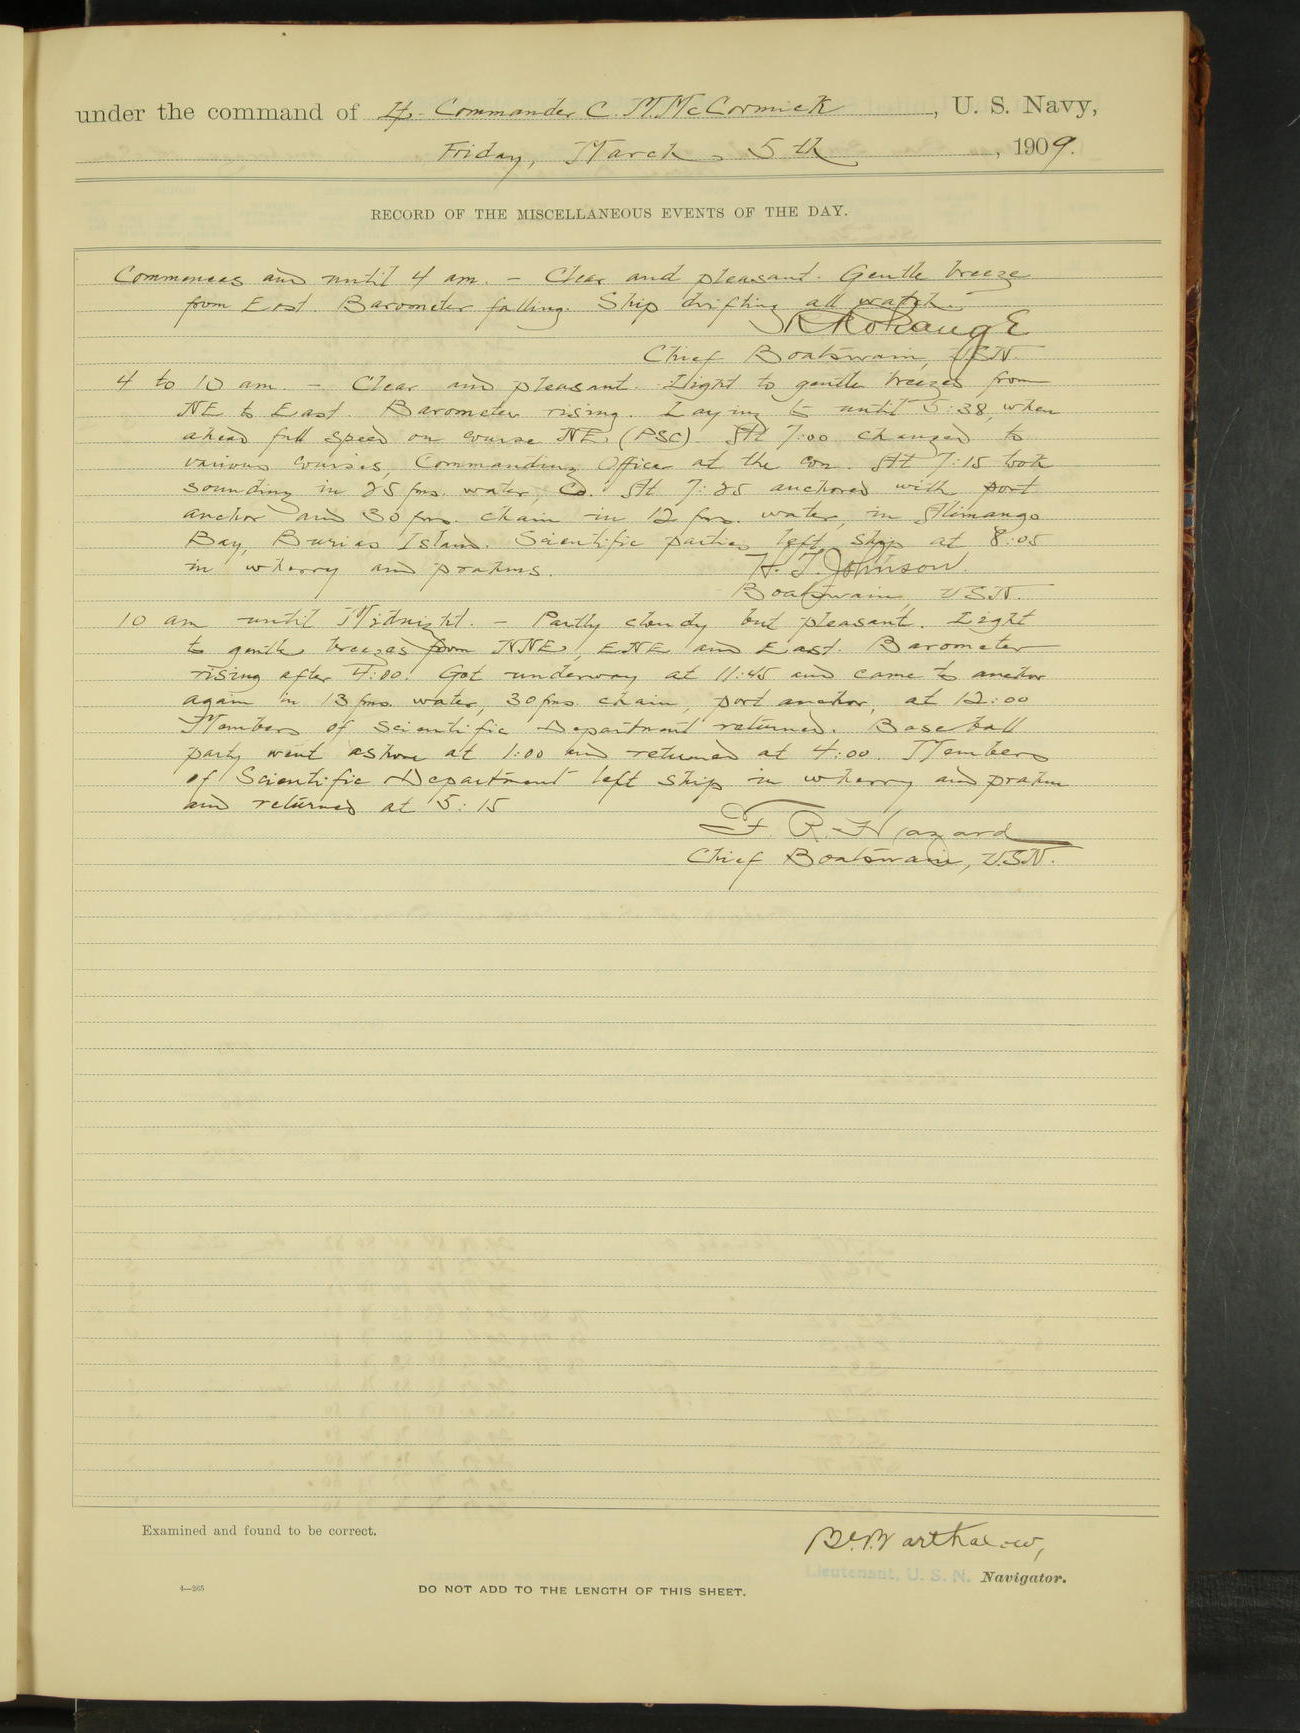 under the command of Lt. Commander C. M. McCormick, U. S. Navy,
Friday, March, 5th, 1909.
RECORD OF THE MISCELLANEOUS EVENTS OF THE DAY.
Commences and until 4 am. - Clear and pleasant. Gentle breeze
from East. Barometer falling. Ship drifting all watch.
Chief Boatswain, USN.
4 to 10 am. - Clear and pleasant. Light to gentle breezes from
NE to East. Barometer rising. Laying to until 5:38, when
ahead full speed on course NE (PSC). At 7:00 changed to
various courses, Commanding Officer at the con. At 7:15 took
sounding in 25 fms. water, Co. At 7:25 anchored with port
anchor and 30 fms. chain in 12 fms. water, in Alimango
Bay, Burias Island. Scientific parties left ship at 8:05
in wherry and prahms. H. T. Johnson.
Boatswain, USN.
10 am until Midnight. - Partly cloudy but pleasant. Light
to gentle breezes from NNE, ENE and East. Barometer
rising after 4:00. Got underway at 11:45 and came to anchor
again in 13 fms. water, 30 fms. chain, port anchor, at 12:00
Members of Scientific Department returned. Base ball
party went ashore at 1:00 and returned at 4:00. Members
of Scientific Department left ship in wherry and prahm
and returned at 5:15
F. R. Hazard
Chief Boatswain, USN.
Examined and found to be correct.
Lieutenant, U. S. N. Navigator.
4—265
DO NOT ADD TO THE LENGTH OF THIS SHEET.